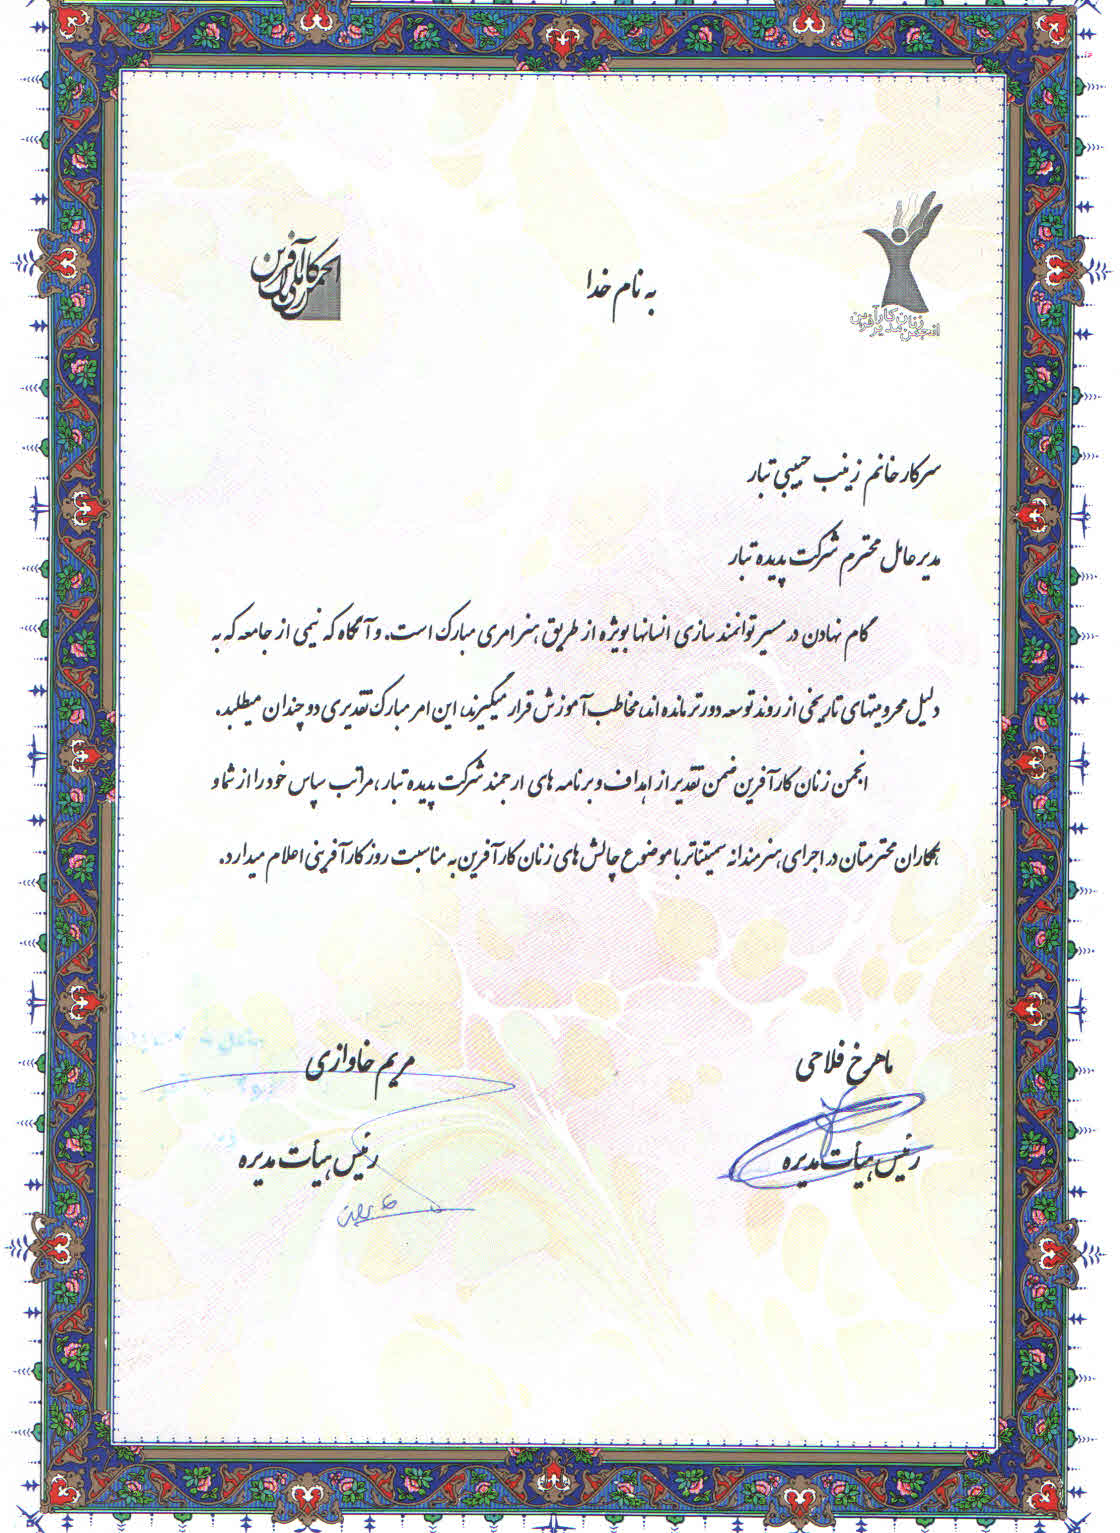 به نام خدا
انجمن زنان مدیر کارآفرین
سرکار خانم زینب حبیبی تبار
مدیر عامل محترم شرکت پدیده تبار
گام نهادن در مسیر توانمند سازی انسانها بویژه از طریق هنر امری مبارک است. و آنگاه که نیمی از جامعه که به
دلیل محرومیتهای تاریخی از روند توسعه دورتر مانده اند، مخاطب آموزش قرار میگیرند، این امر مبارک تقدیری دو چندان میطلبد.
انجمن زنان کارآفرین ضمن تقدیر از اهداف و برنامه های ارجمند شرکت پدیده تبار، مراتب سپاس خود را از شما و
همکاران محترمتان در اجرای هنرمندانه سمیتاتر با موضوع چالش های زنان کارآفرین به مناسبت روز کارآفرینی اعلام میدارد.
ماهرخ فلاحی
مریم خاوازی
رئیس هیأت مدیره
رئیس هیأت مدیره